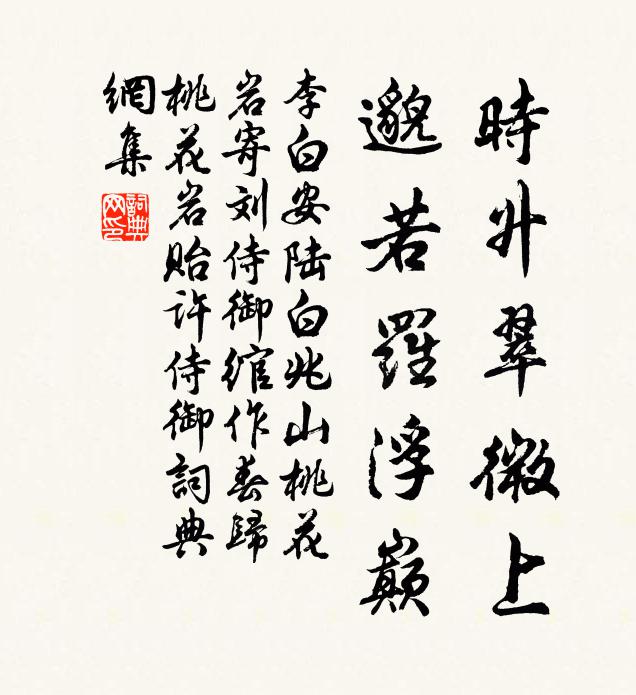 時升翠微上
邈若羅浮巔
李白安陆白兆山桃花
岩寄刘侍御綰作春歸
桃花岩贻许侍御詞典
網集
詞典
网印